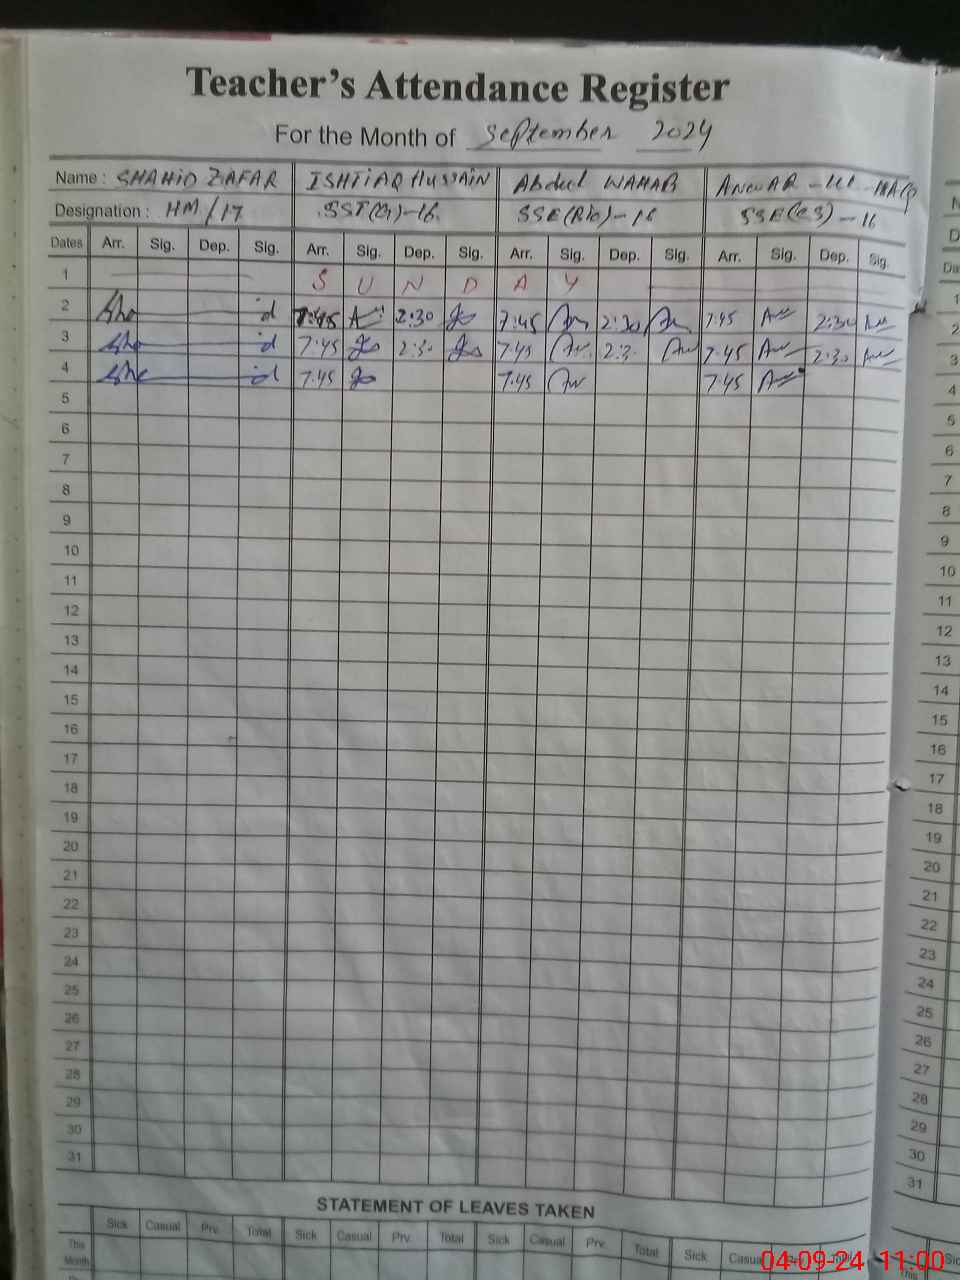 Teacher's Attendance Register
For the Month of September 2024
Name : SHAHID ZAFAR ISHTIAQ HUSSAIN Abdul WAHAB ANWAR-UL-HAQ
Designation : HM/17 SST(G)-16 SSE(Bio)-16 SSE(CS)-16
Dates Arr. Sig. Dep. Sig. Arr. Sig. Dep. Sig. Arr. Sig. Dep. Sig. Arr. Sig. Dep. Sig.
1 S U N D A Y
2 7:45 2:30 7:45 2:30 7:45 2:30
3 7:45 2:30 7:45 2:3 7:45 2:30
4 7:45 7:45 7:45
5
6
7
8
9
10
11
12
13
14
15
16
17
18
19
20
21
22
23
24
25
26
27
28
29
30
31
STATEMENT OF LEAVES TAKEN
Sick Casual Prv. Total Sick Casual Prv. Total Sick Casual Prv. Total Sick Casual
This
Month
N
D
Da
1
2
3
4
5
6
7
8
9
10
11
12
13
14
15
16
17
18
19
20
21
22
23
24
25
26
27
28
29
30
31
This
04-09-24 11:00